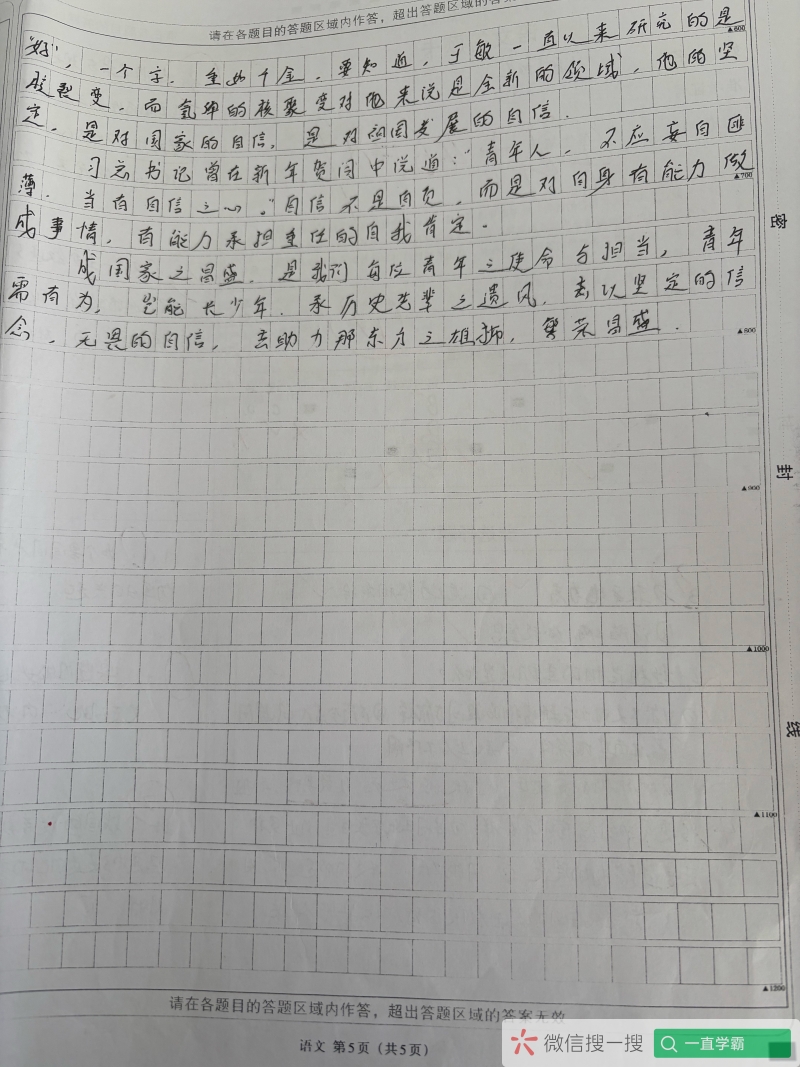 请在各题目的答题区域内作答，超出答题区域的答案
"好"，一个字，重如千金，要知道，于敏一直以来研究的是
▲600
核裂变，而氢弹的核聚变对他来说是全新的领域，他的坚
定，是对国家的自信，是对祖国发展的自信．
习总书记曾在新年贺词中说道："青年人，不应妄自菲
▲700
薄，当有自信之心．"自信不是自负，而是对自身有能力做
成事情，有能力承担重任的自我肯定．
成国家之昌盛，是我们每位青年之使命与担当，青年
需有为，岂能长少年．承历史先辈之遗风，去以坚定的信
念，无畏的自信，去助力那东方之雄狮，繁荣昌盛．
▲800
▲900
▲1000
▲1100
▲1200
密
封
线
请在各题目的答题区域内作答，超出答题区域的答案无效
语文 第5页（共5页）
微信搜一搜
一直学霸